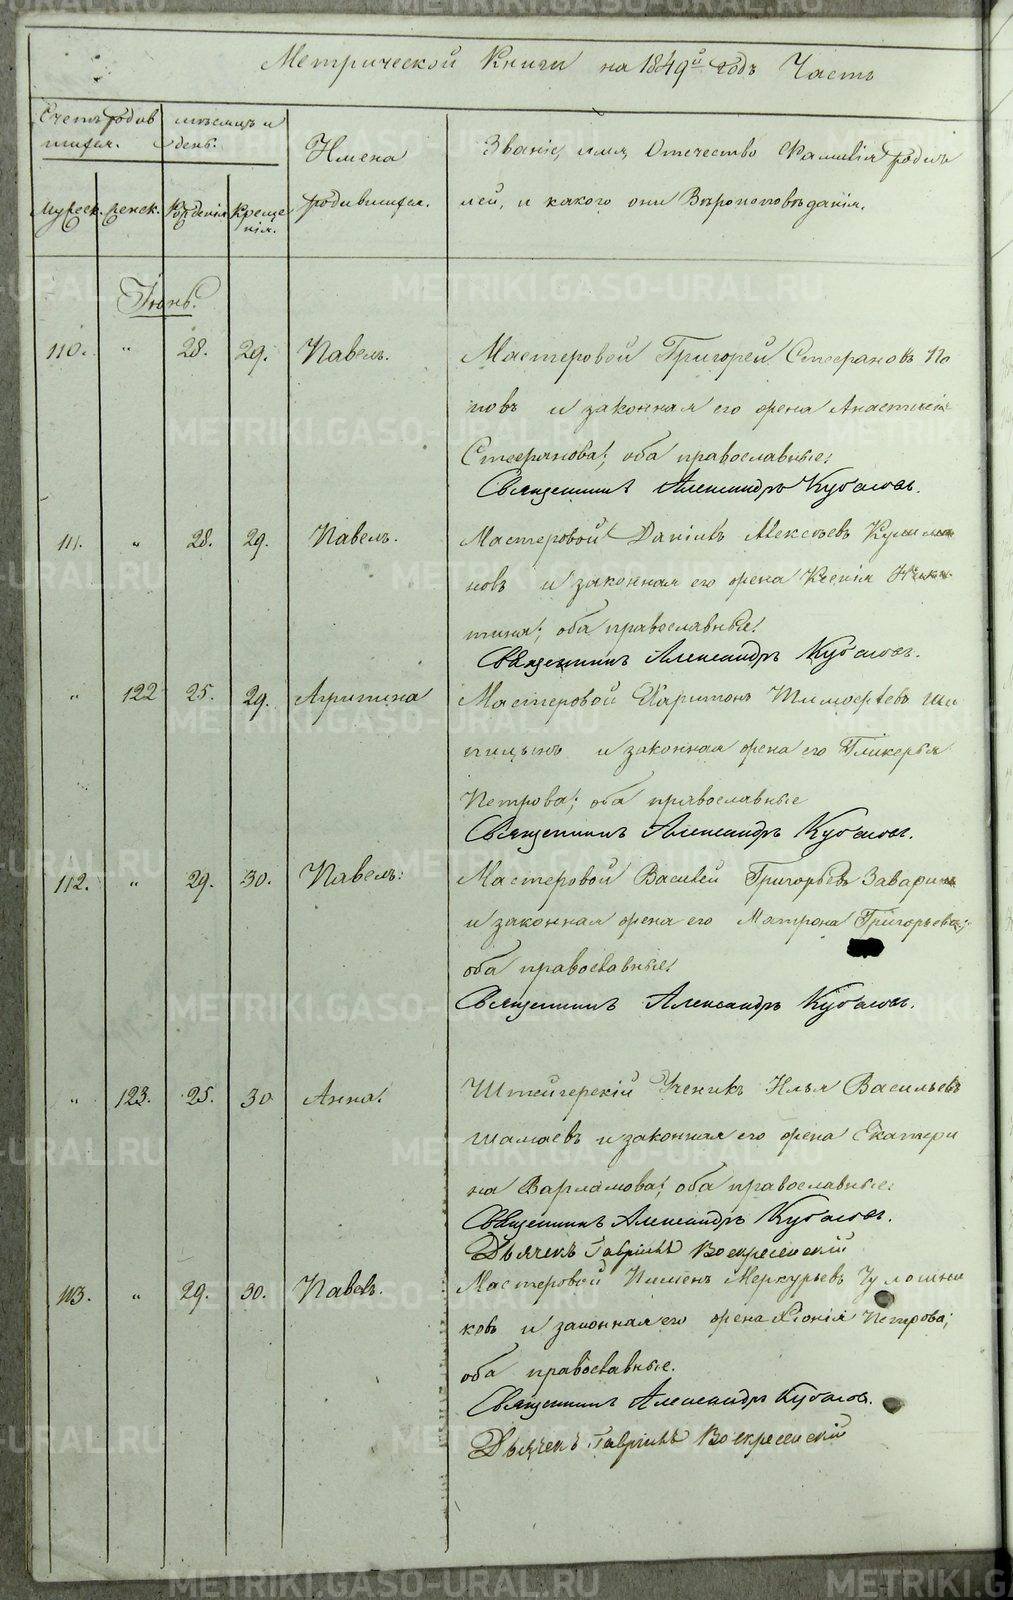 Метрической Книги на 1849й годъ Часть
Счетъ родив
шихся.
мѣсяцъ и
день.
Имена
родившихся.
Званіе, имя, Отечество и Фамилія родите
лей, и какого они Вѣроисповѣданія.
Мужеск.
Женск.
Рожденія
Креще
нія.
Іюнь.
110. „ 28. 29. Павелъ. Мастеровой Григорей Стефановъ По
повъ и законная его жена Анастасія
Стефанова; оба православные.
Священникъ Александръ
111. „ 28. 29. Павелъ. Мастеровой Даніилъ Алексѣевъ
новъ и законная его жена Ксенія Ники
тина; оба православные.
Священникъ Александръ
„ 122 25. 29. Агрипина Мастеровой Харитонъ Тимофѣевъ Ши
пицынъ и законная жена его Гликерья
Петрова; оба православные
Священникъ Александръ
112. „ 29. 30. Павелъ. Мастеровой Василей Григорьевъ Заваринъ
и законная жена его Матрона Григорьева;
оба православные.
Священникъ Александръ
„ 123. 25. 30 Анна. Штейгерскій Ученикъ Илья Васильевъ
Шамаевъ и законная его жена Екатери
на Варламова; оба православные.
Священникъ Александръ
Дьячекъ Гавріилъ Воскресенскій
113. „ 29. 30. Павелъ. Мастеровой Пименъ Меркурьевъ
ковъ и законная его жена Хіонія Петрова;
оба православные.
Священникъ Александръ
Дьячекъ Гавріилъ Воскресенскій
METRIKI.GASO-URAL.RU